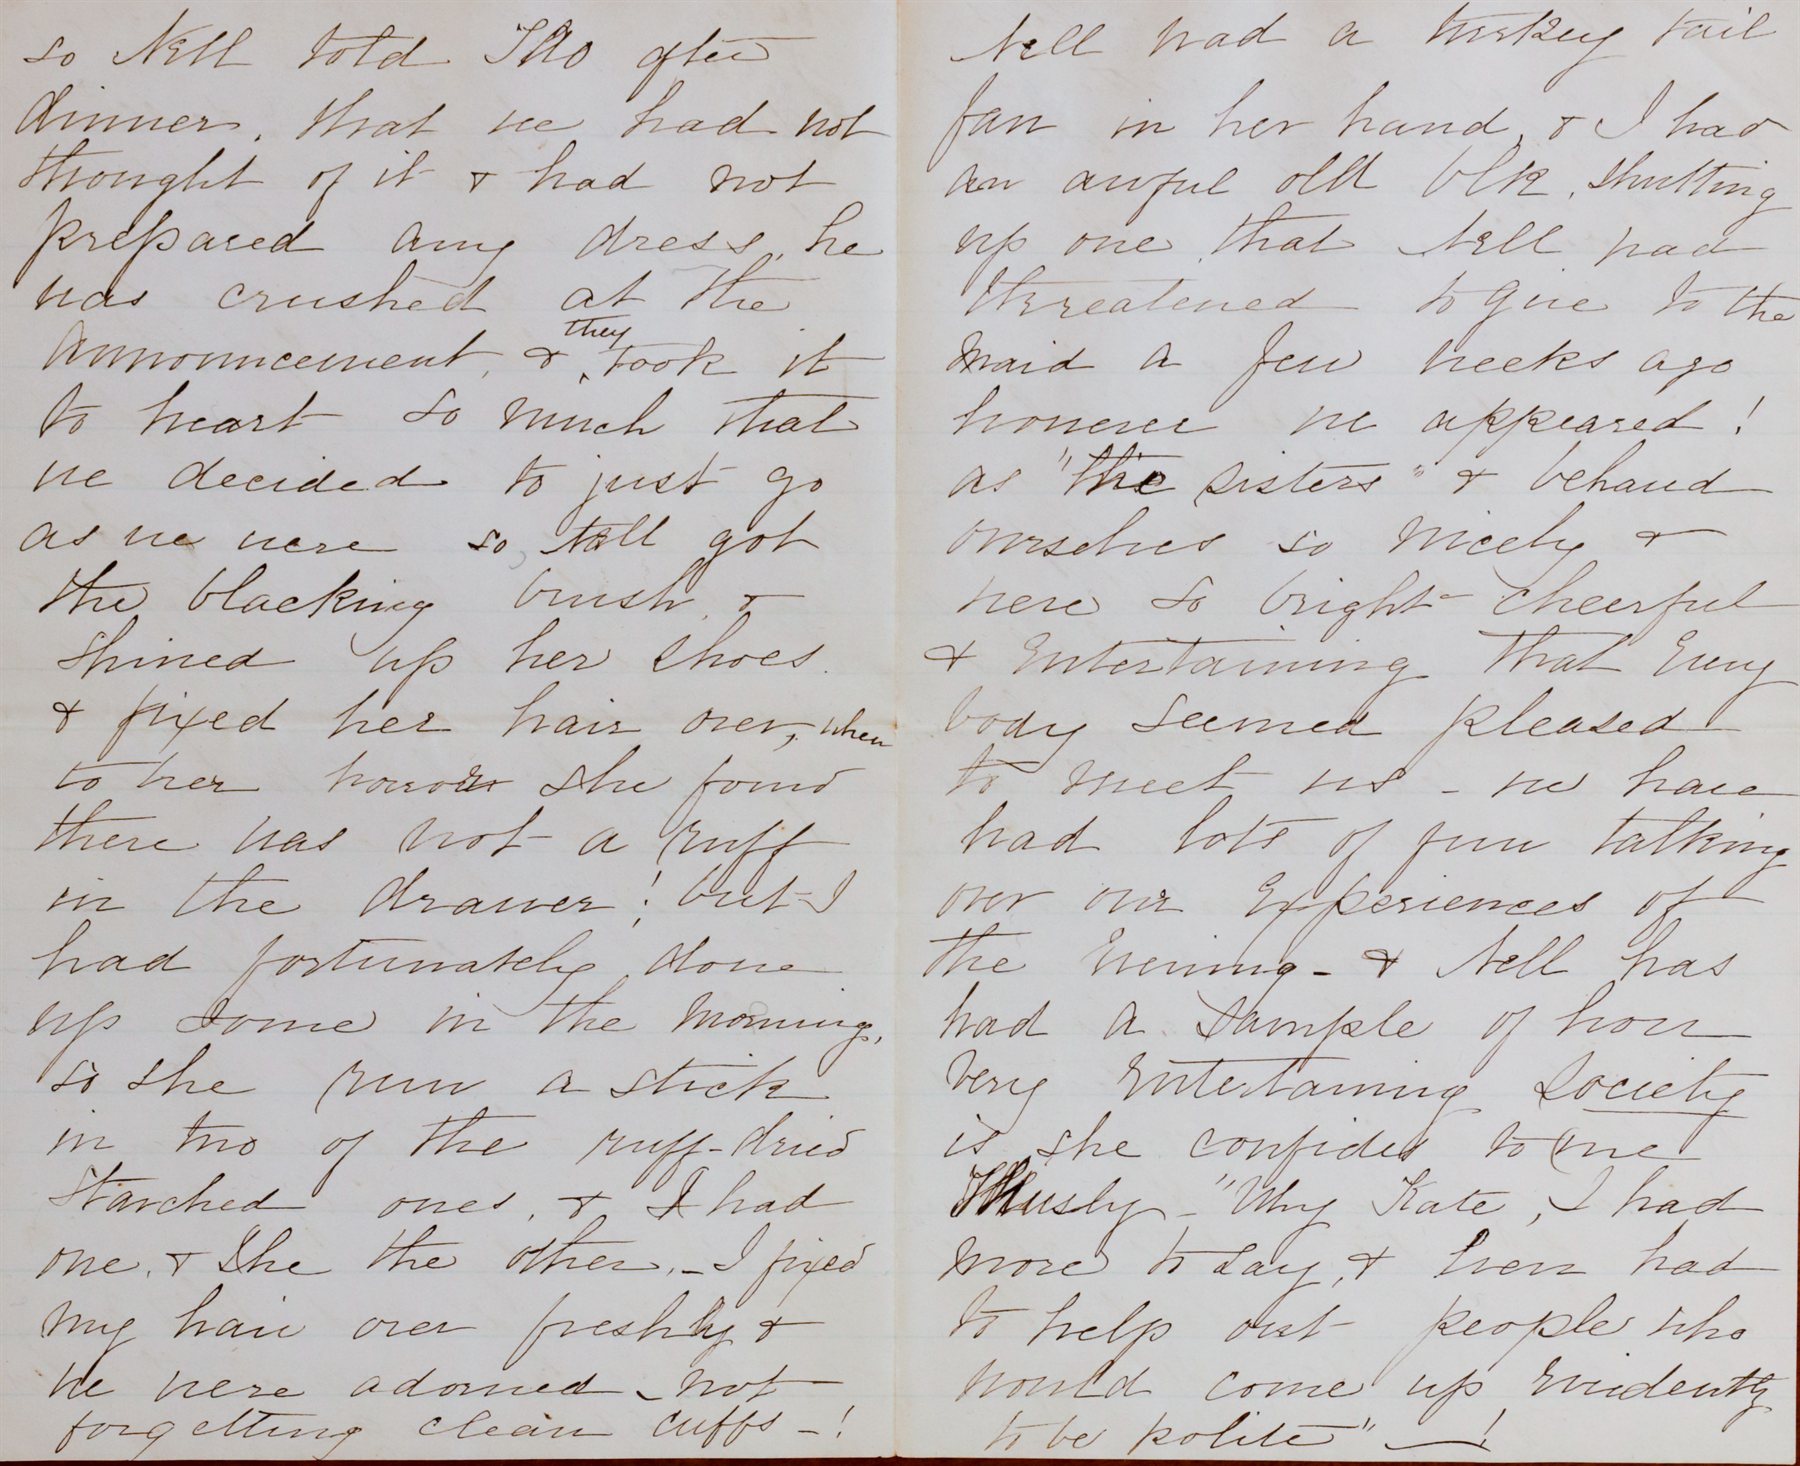 so Nell told Theo after
dinner, that we had not
thought of it & had not
prepared any dress, he
was crushed at the
announcement, & they took it
to heart so much that
we decided to just go
as we were so, Nell got
the blacking brush &
shined up her shoes
& fixed her hair over, when
to her horror she found
there was not a ruff
in the drawer! but I
had fortunately done
up some in the morning,
so she run a stick
in two of the ruff-dried
starched ones, & I had
one, & she the other, - I fixed
my hair over freshly &
we were adorned - not
forgetting clean cuffs - !
Nell had a turkey tail
fan in her hand, & I had
an awful old blk, shutting
up one, that Nell had
threatened to give to the
maid a few weeks ago
however we appeared!
as "the sisters" & behaved
ourselves so nicely &
were so bright cheerful
& entertaining that every
body seemed pleased
to meet us - we have
had lots of fun talking
over our experiences of
the evening - & Nell has
had a sample of how
very entertaining society
is she confides to me
Thusly - "Why Kate, I had
more to say, & even had
to help out people who
would come up evidently
to be polite" - !